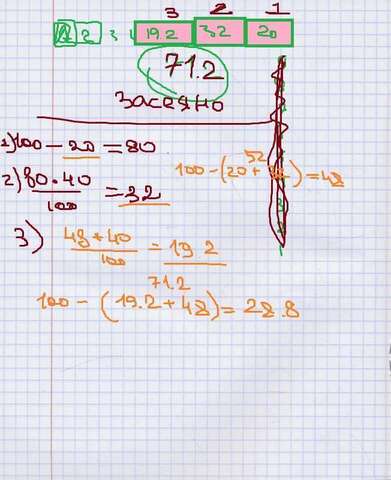 3 2 1
19.2 32 20
71.2
засеяно
1) 100 - 20 = 80
32
100 - (20 + ) = 48
2) 80 · 40 / 100 = 32
3) 48 * 40 / 100 = 19 2
71.2
100 - (19.2 + 48) = 28.8